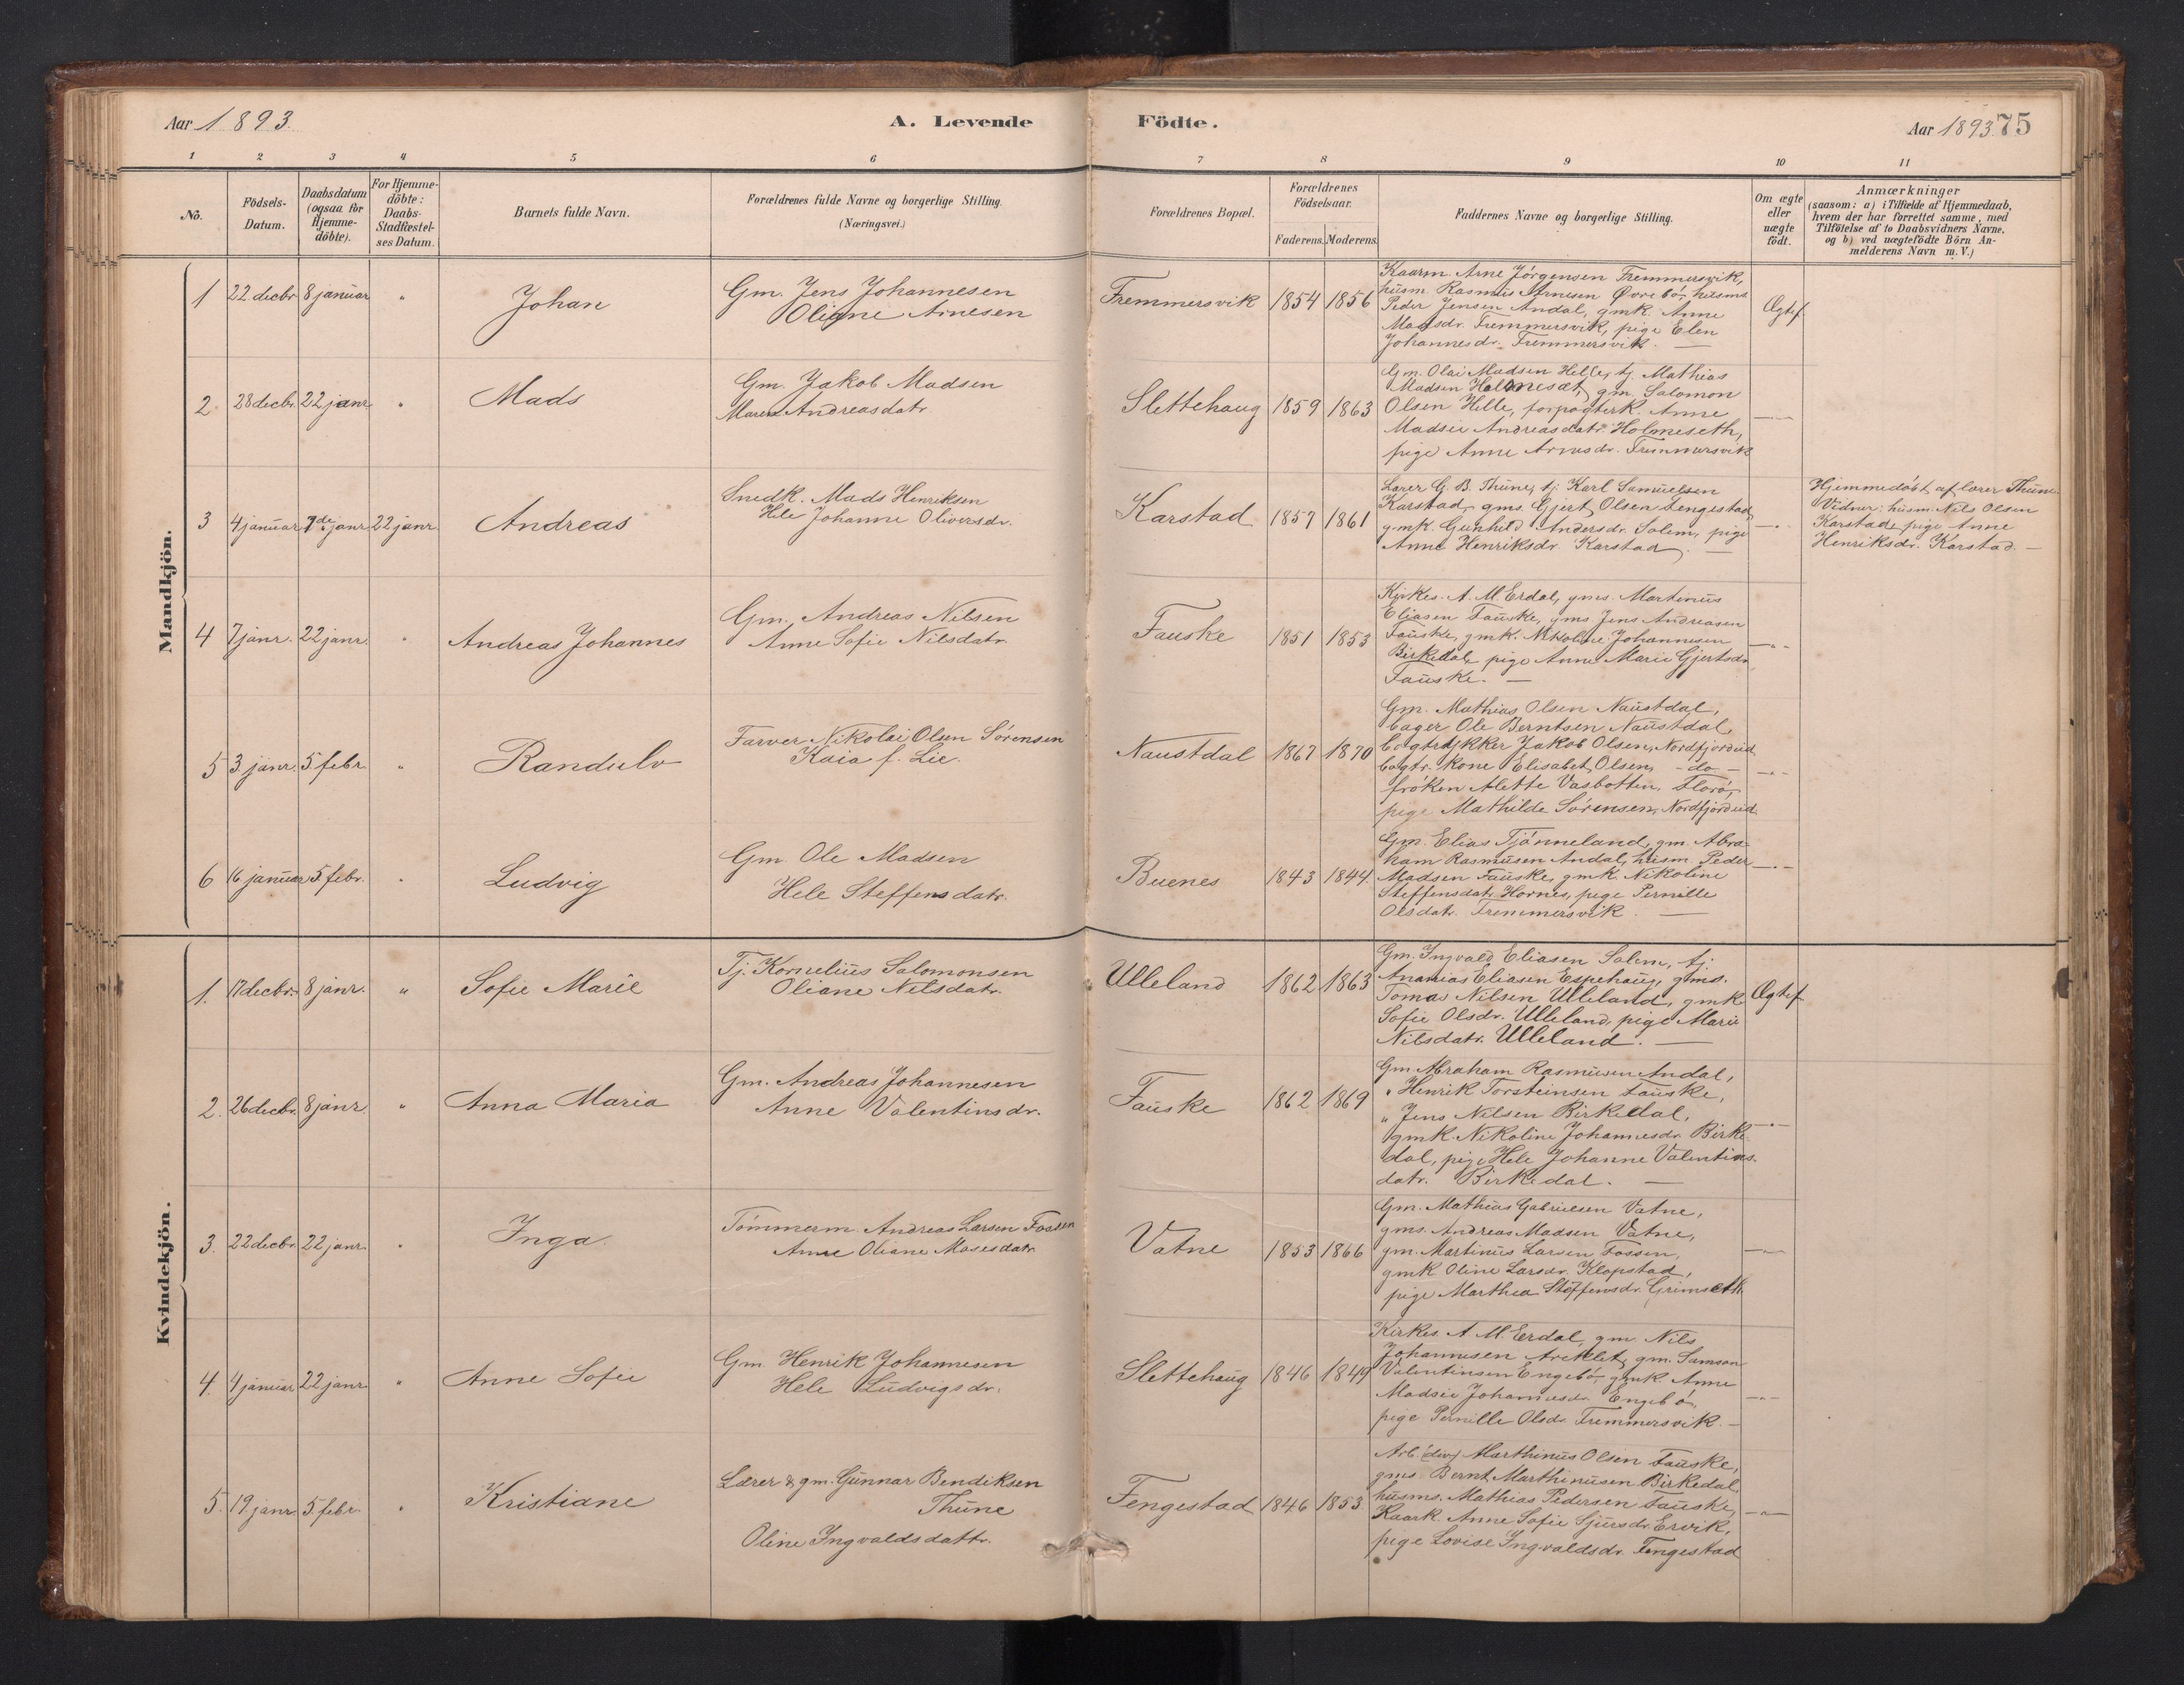 Aar 1893.
A. Levende
Födte.
Aar 1893. 75
1 2 3 4 5 6 7 8 9 10 11
No.
Födsels-
Datum.
Daabsdatum
(ogsaa for
Hjemme-
döbte).
For Hjemme-
döbte:
Daabs-
Stadfæstel-
ses Datum.
Barnets fulde Navn.
Forældrenes fulde Navne og borgerlige Stilling.
(Næringsvei.)
Forældrenes Bopæl.
Forældrenes
Födselsaar.
Faderens. Moderens.
Faddernes Navne og borgerlige Stilling.
Om ægte
eller
uægte
födt.
Anmærkninger
(saasom: a) i Tilfælde af Hjemmedaab,
hvem der har forrettet samme, med
Tilföielse af to Daabsvidners Navne,
og b) ved uægtefödte Börn An-
melderens Navn m.V.)
Mandkjön.
1 22 decbr 8 januar " Johan
Gm. Jens Johannesen
Oliane Arnesen
Fremmersvik 1854 1856
Kaarm. Arne Jörgensen Fremmersvik,
husm. Rasmus Arnesen Övrebö, husms.
Peder Jensen Andal, gmk. Anne
Madsdr. Fremmersvik, pige Elen
Johannesdr. Fremmersvik. —
Ægtef.
2 28 decbr. 22 janr. " Mads
Gm. Jakob Madsen
Maren Andreasdatr.
Slettehaug 1859 1863
Gm. Olai Madsen Helle, tj. Mathias
Madsen Holmesæt, gm. Salomon
Olsen Helle, forpagterk. Anne
Madsie Andreasdatr. Holmeseth,
pige Anne Arnesdr. Fremmersvik
—"—
3 4 januar 7de janr 22 janr. Andreas
Snedk. Mads Henriksen
Hele Johanne Oliversdr.
Karstad 1857 1861
Lærer G. B. Thune, tj. Karl Samuelsen
Karstad, gms. Gjert Olsen Fengestad,
gmk. Gunhild Andersdr. Solem, pige
Anne Henriksdr. Karstad. —
—"—
Hjemmedöbt af lærer Thune.
Vidner: husm. Nils Olsen
Karstad, pige Anne
Henriksdr. Karstad. —
4 7 janr. 22 janr. " Andreas Johannes
Gm. Andreas Nilsen
Anne Sofie Nilsdatr.
Fauske 1851 1853
Kirkes. A. M. Erdal, gms. Martinus
Eliasen Fauske, gms Jens Andreasen
Fauske, gmk. Nikoline Johannesen
Birkedal, pige Anne Marie Gjertsdr.
Fauske. —
—"—
5 3 janr. 5 febr. " Randulv
Farver Nikolai Olsen Sörensen
Kaia f. Lie.
Naustdal 1867 1870
Gm. Mathias Olsen Naustdal,
bager Ole Berntsen Naustdal,
bogtrykker Jakob Olsen, Nordfjordeid
bogtr. kone Elisabet Olsen, - do -
fröken Alette Vasbotten, Florö,
pige Mathilde Sörensen, Nordfjordeid.
—"—
6 16 januar 5 febr. " Ludvig
Gm. Ole Madsen
Hele Steffensdatr.
Buenes 1843 1844
Gm. Elias Tjönneland, gm. Abra-
ham Rasmusen Andal, husm. Peder
Madsen Fauske, gmk. Nikoline
Steffensdatr. Hornes, pige Pernille
Olsdatr. Fremmersvik. —
—"—
Kvindekjön.
1. 17 decbr. 8 janr. " Sofie Marie
Tj. Kornelius Salomonsen
Oliane Nilsdatr.
Ulleland 1862 1863
Gm. Ingvald Eliasen Solem, tj.
Ananias Eliasen Espehaug, gms.
Tomas Nilsen Ulleland, gmk
Sofie Olsdr. Ulleland, pige Marie
Nilsdatr. Ulleland. —
Ægtef.
2. 26 decbr. 8 janr. " Anna Maria
Gm. Andreas Johannesen
Anne Valentinsdr.
Fauske 1862 1869
Gm. Abraham Rasmusen Andal,
" Henrik Torsteinsen Fauske,
" Jens Nilsen Birkedal,
gmk. Nikoline Johannesdr. Birke-
dal, pige Hele Johanne Valentins-
datr. Birkedal. —
—"—
3. 22 decbr. 22 janr. " Inga.
Tömmerm. Andreas Larsen Fossen
Anne Oliane Mosesdatr.
Vatne 1853 1866
Gm. Mathias Gabrielsen Vatne,
gms. Andreas Madsen Vatne,
gm. Martinus Larsen Fossen,
gmk Oline Larsdr. Klopstad,
pige Marthea Stöffensdr. Grimseth.
—"—
4. 4 januar 22 janr. " Anne Sofie
Gm. Henrik Johannesen
Hele Ludvigsdr.
Slettehaug 1846 1849
Kirkes. A. M. Erdal, gm. Nils
Johannesen Areklet, gm. Samson
Valentinsen Engebö, gmk. Anne
Madsie Johannesdr. Engebö,
pige Pernille Olsdr. Fremmersvik. —
—"—
5. 19 janr 5 febr. " Kristiane
Lærer & gm. Gunnar Bendiksen
Thune
Oline Ingvaldsdattr.
Fengestad 1846 1853
Arb. (div) Marthinus Olsen Fauske,
gms. Bernt Marthinusen Birkedal,
husms. Mathias Pedersen Fauske,
Kaark. Anne Sofie Sjursdr. Ervik,
pige Lovise Ingvaldsdr. Fengestad
—"—